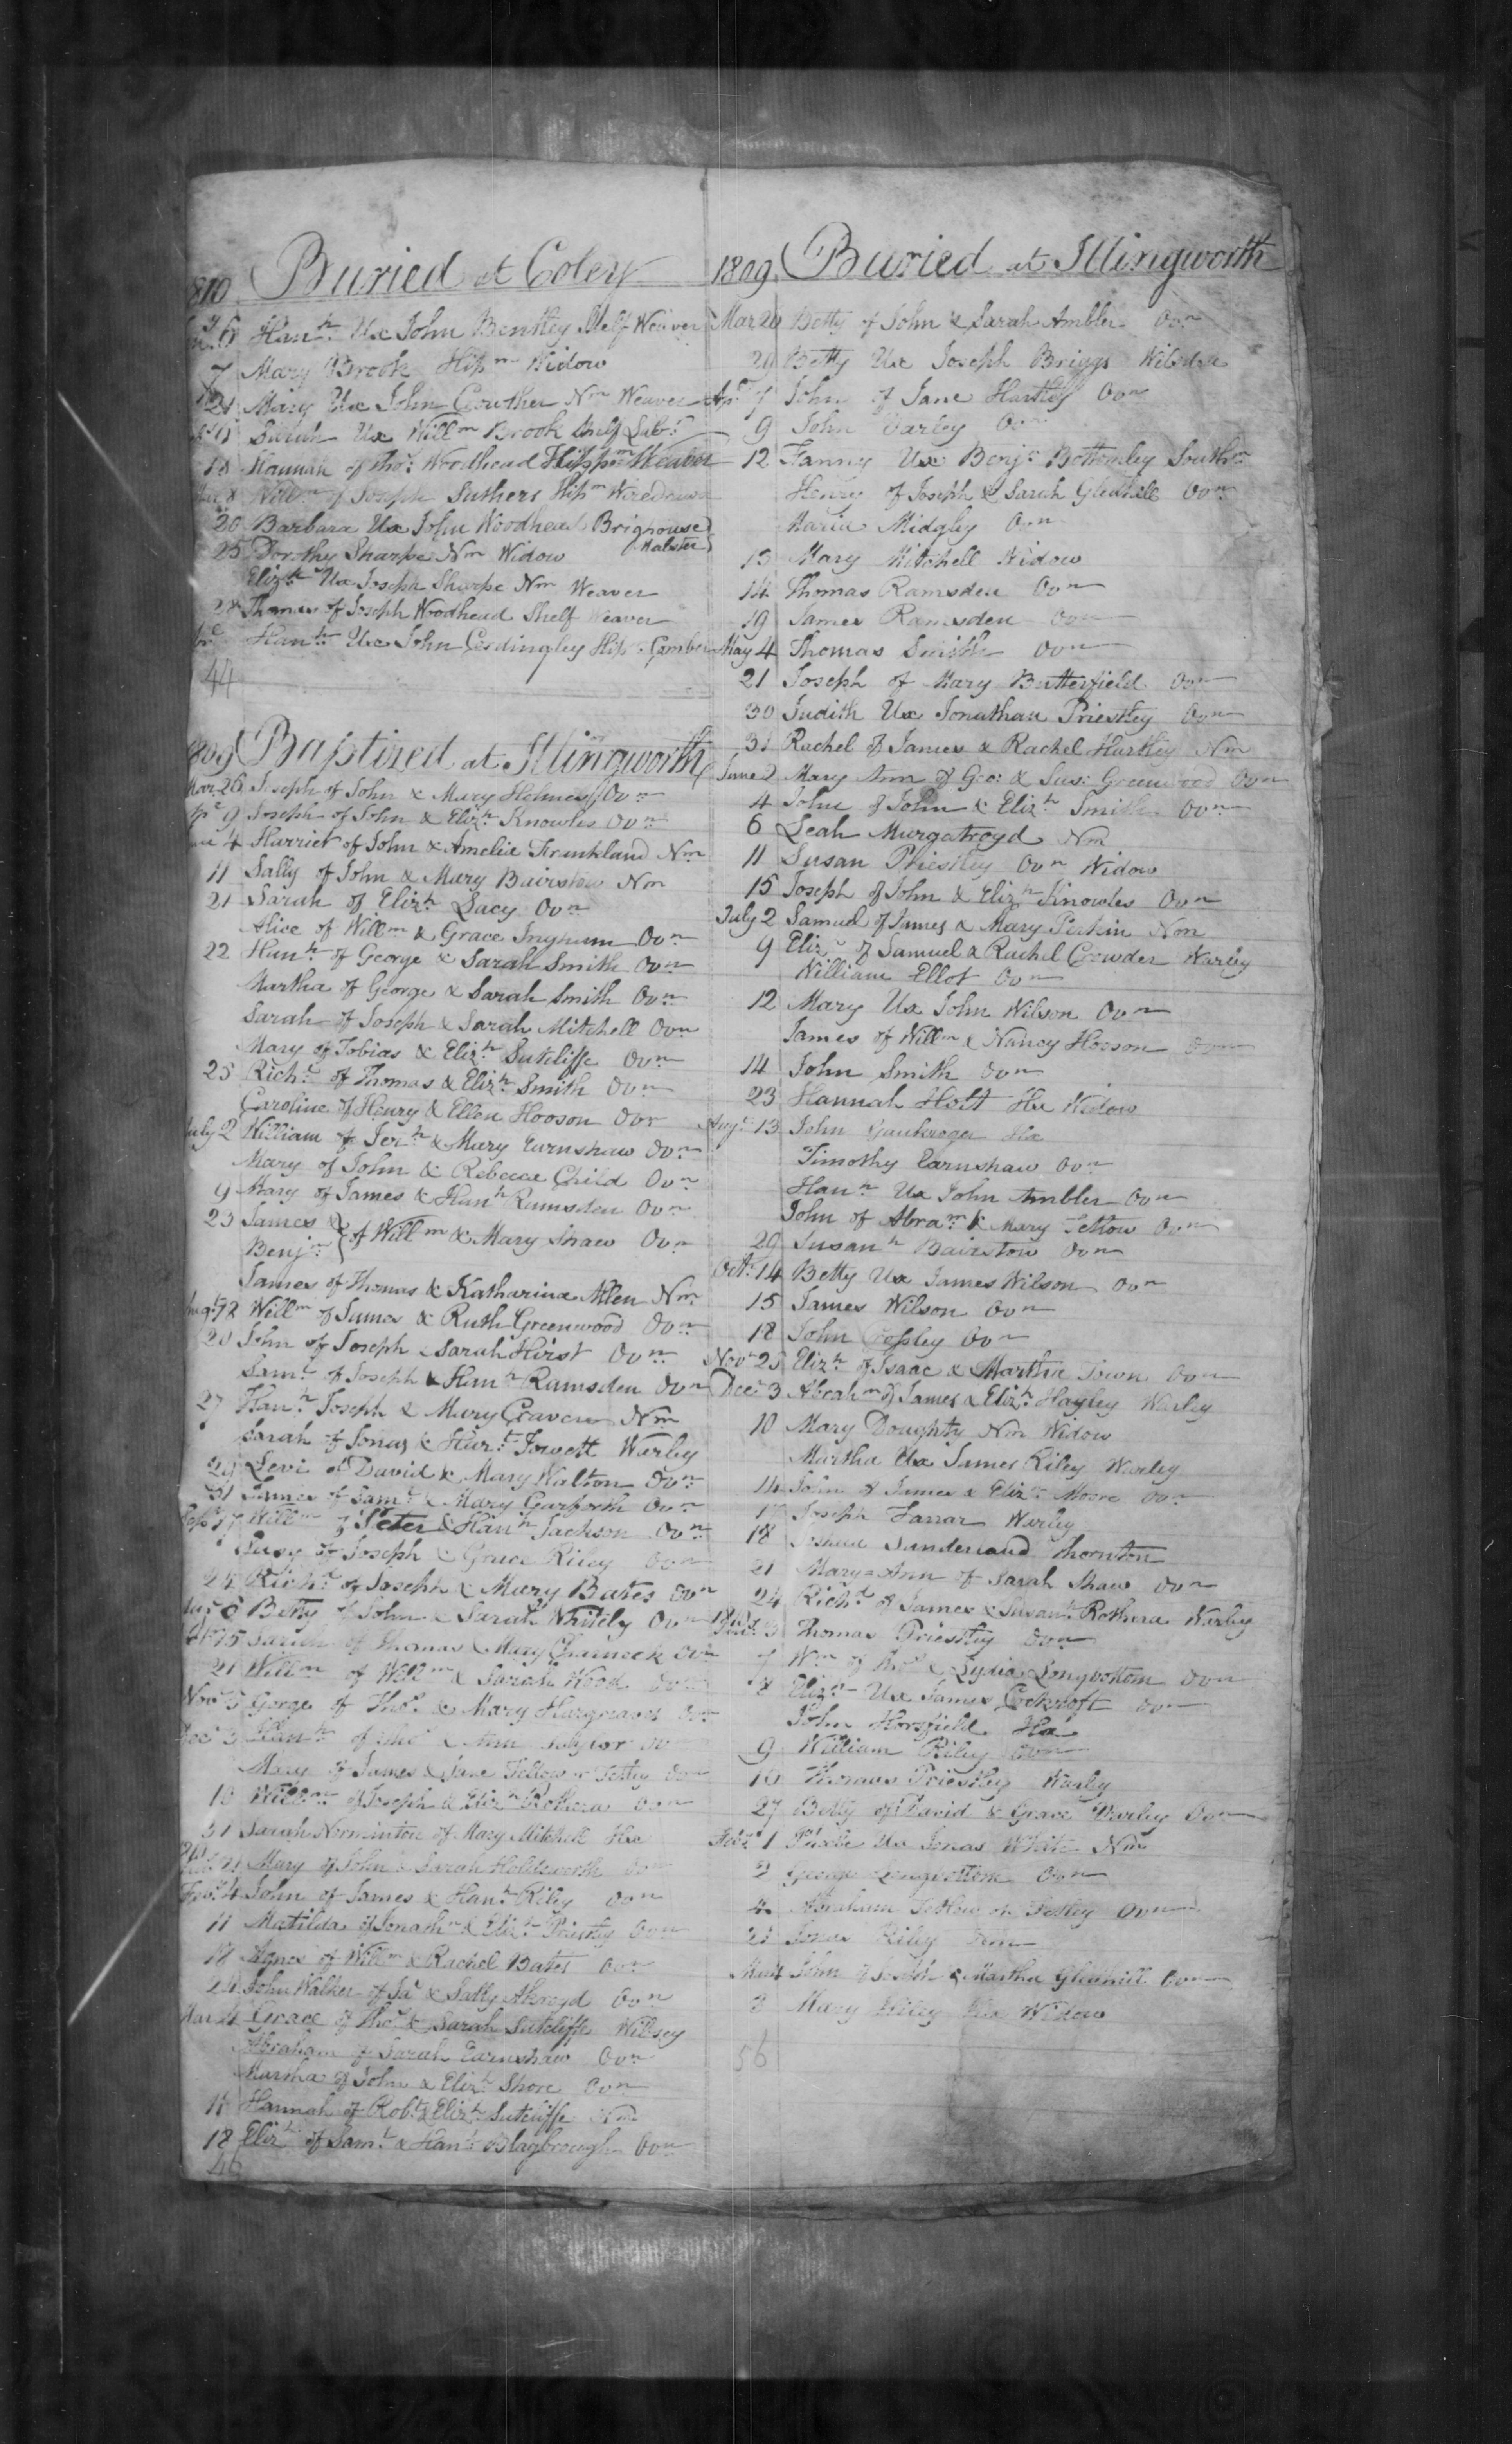 1810 Buried at Coley
6 Hanh Ux John Bentley Shelf Weaver
7 Mary Brook Hipm Widow
21 Mary Ux John Crowther Nm Weaver
Sarah Ux Willm Brook Shelf Labr
18 Hannah of Thos Woodhead Hippm Weaver
Willm of Joseph Suthers Hipm Wiredrawer
20 Barbara Ux John Woodhead Brighouse
Malster
25 Dorothy Sharpe Nm Widow
Elizth Ux Joseph Sharpe Nm Weaver
28 Thomas of Joseph Woodhead Shelf Weaver
Hanh Ux John Cordingley Hip Comber
44
1809 Baptized at Illingworth
Mar 26 Joseph of John & Mary Holmes Ovn
9 Joseph of John & Elizth Knowles Ovn
4 Harriet of John & Amelia Frankland Nm
11 Sally of John & Mary Bairstow Nm
21 Sarah of Elizth Lacy Ovn
Alice of Willm & Grace Ingham Ovn
22 Hanh of George & Sarah Smith Ovn
Martha of George & Sarah Smith Ovn
Sarah of Joseph & Sarah Mitchell Ovn
Mary of Tobias & Elizth Sutcliffe Ovn
25 Richd of Thomas & Elizth Smith Ovn
Caroline of Henry & Ellen Hooson Ovn
July 2 William of Jerh & Mary Earnshaw Ovn
Mary of John & Rebecca Child Ovn
9 Mary of James & Hanh Ramsden Ovn
23 James &
Benjn } of Willm & Mary Shaw Ovn
James of Thomas & Katharina Allen Nm
Augt 12 Willm of James & Ruth Greenwood Ovn
20 John of Joseph & Sarah Hirst Ovn
Saml of Joseph & Hanh Ramsden Ovn
27 Hanh Joseph & Mary Craven Nm
Sarah of Jonas & Hart Fowett Warley
29 Levi of David & Mary Walton Ovn
31 James of Saml & Mary Garforth Ovn
Sepr 17 Willm of Peter & Hanh Jackson Ovn
of Joseph & Grace Riley Ovn
24 Richd of Joseph & Mary Bates Ovn
8 Betty of John & Sarah Whitely Ovn
15 Sarah of Thomas & Mary Charnock Ovn
21 Willm of Willm & Sarah Wood Ovn
Novr 5 Gorge of Thos & Mary Hargreaves Ovn
Decr 3 Hanh of Thos & Ann Ovn
Mary of James & Jane Tellow or Tetley Ovn
10 Willm of Joseph & Elizth Rothera Ovn
31 Sarah Norminton of Mary Mitchell Hx
Mary of John & Sarah Holdsworth Ovn
Feby 4 John of James & Hanh Riley Ovn
11 Matilda of Jonathn & Elizth Priestly Ovn
18 Agnes of Willm & Rachel Bates Ovn
24 John Walker of Jas & Sally Akroyd Ovn
Mar 4 Grace of Thos & Sarah Sutcliffe Wilsey
Abraham of Sarah Earnshaw Ovn
Martha of John & Elizth Shore Ovn
11 Hannah of Robt & Elizth Sutcliffe Nm
18 Elizth of Saml & Hanh Blagbrough Ovn
46
1809 Buried at Illingworth
Mar 20 Betty of John & Sarah Ambler Ovn
29 Betty Ux Joseph Briggs Wilsden
Apr 7 John of Jane Hartley Ovn
9 John Varley Ovn
12 Fanny Ux Benjn Bottomley Southm
Henry of Joseph & Sarah Gledhill Ovn
Maria Midgley Ovn
13 Mary Mitchell Widow
14 Thomas Ramsden Ovn
19 James Ramsden Ovn
May 4 Thomas Smith Ovn
21 Joseph of Mary Butterfield Ovn
30 Judith Ux Jonathan Priestley Ovn
31 Rachel of James & Rachel Hartley Nm
June 2 Mary Ann of Geo: & Sus: Greenwood Ovn
4 John of John & Elizth Smith Ovn
6 Leah Murgatroyd Nm
11 Susan Priestley Ovn Widow
15 Joseph of John & Elizth Knowles Ovn
July 2 Samuel of James & Mary Perkin Nm
9 Eliz of Samuel & Rachel Crowder Warley
William Ellot Ovn
12 Mary Ux John Wilson Ovn
James of Willm & Nancy Hooson Ovn
14 John Smith Ovn
23 Hannah Holt Hx Widow
Augt 13 John Gaukroger Hx
Timothy Earnshaw Ovn
Hanh Ux John Ambler Ovn
John of Abram & Mary Tettow Ovn
29 Susanh Bairstow Ovn
Octr 14 Betty Ux James Wilson Ovn
15 James Wilson Ovn
18 John Crossley Ovn
Novr 25 Elizth of Isaac & Martha Town Ovn
Decr 3 Abrahm of James & Elizth Hayley Warley
10 Mary Doughty Nm Widow
Martha Ux James Riley Warley
14 John of James & Elizth Moore Ovn
17 Joseph Farrar Warley
18 Joshua Sunderland Thornton
21 Mary=Ann of Sarah Shaw Ovn
24 Richd of James & Susanh Rothera Warley
Thomas Priestley Ovn
7 Wm of Thos & Lydia Longbottom Ovn
8 Elizth Ux James Cockroft Ovn
John Horsfield Hx
9 William Riley Ovn
16 Thomas Priestley Warley
27 Betty of David & Grace Varley Ovn
Feby 1 Phebe Ux Jonas White Nm
2 George Longbottom Ovn
4 Abraham Tetlow or Tetley Ovn
21 Jonas Riley Ovn
Mar 4 John of Joseph & Martha Gledhill Ovn
8 Mary Riley Hx Widow
56